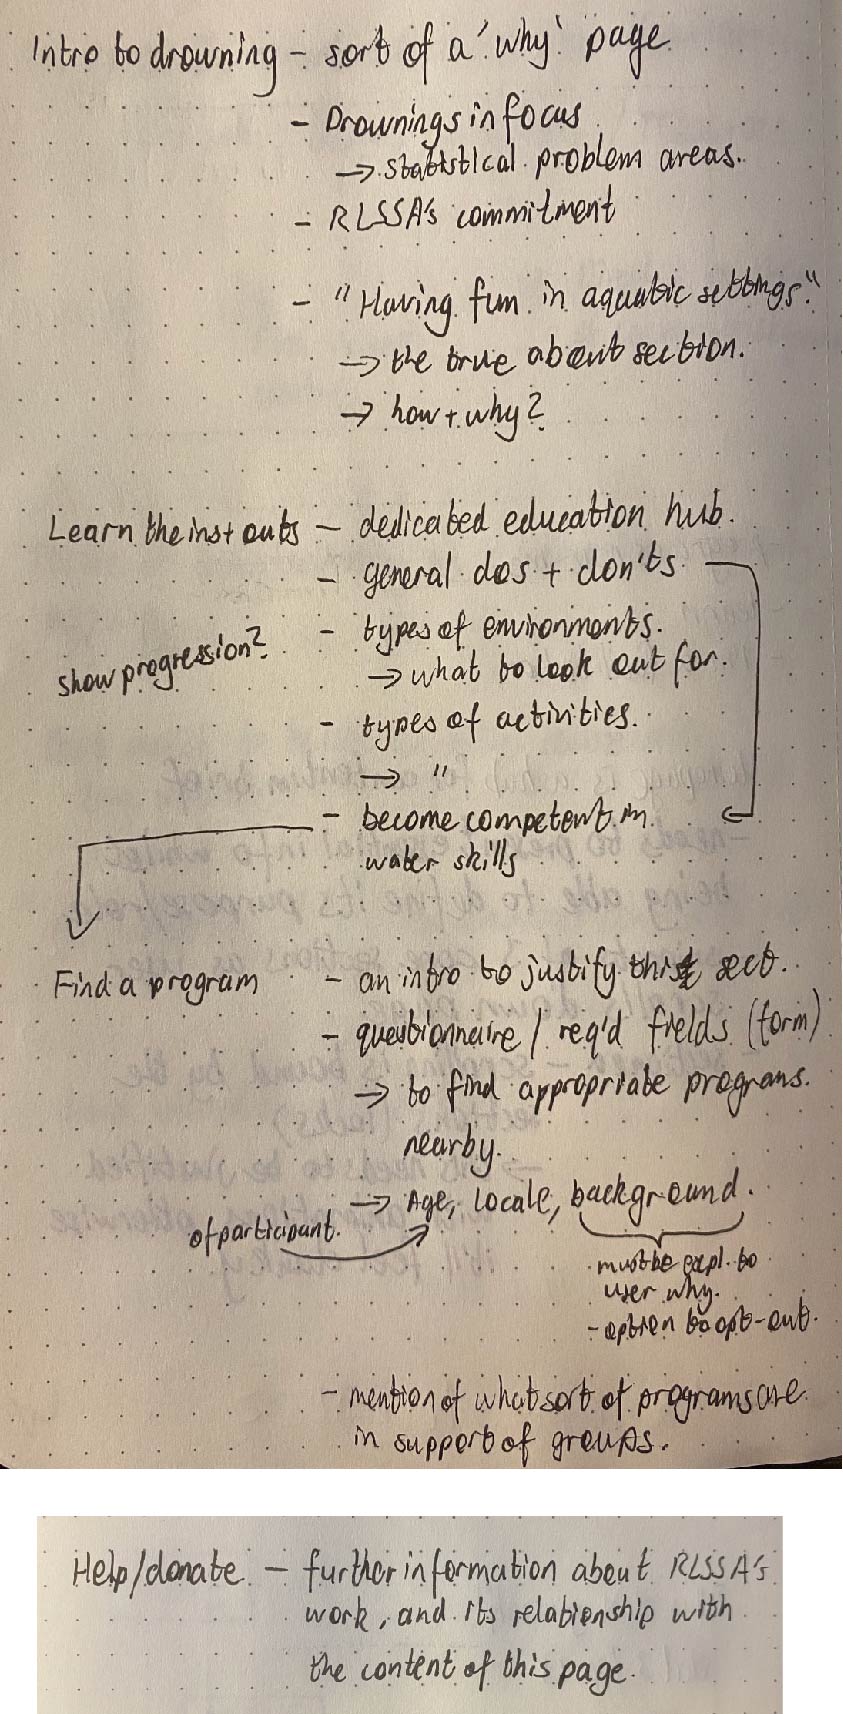 Intro to drowning – sort of a 'why' page
– Drownings in focus
→ statistical problem areas.
– RLSSA's commitment
– "Having fun in aquatic settings."
→ the true about section.
→ how + why?
Learn the ins + outs – dedicated education hub.
– general dos + don'ts
show progression?
– types of environments.
→ what to look out for.
– types of activities.
→ "
– become competent in
water skills
Find a program – an intro to justify this sect.
– questionnaire / req'd fields (form)
→ to find appropriate programs
nearby.
→ Age, locale, background.
of participant.
must be expl. to
user why.
– option to opt-out.
– mention of what sort of programs are
in support of groups.
Help/donate – further information about RLSSA's
work, and its relationship with
the content of this page.